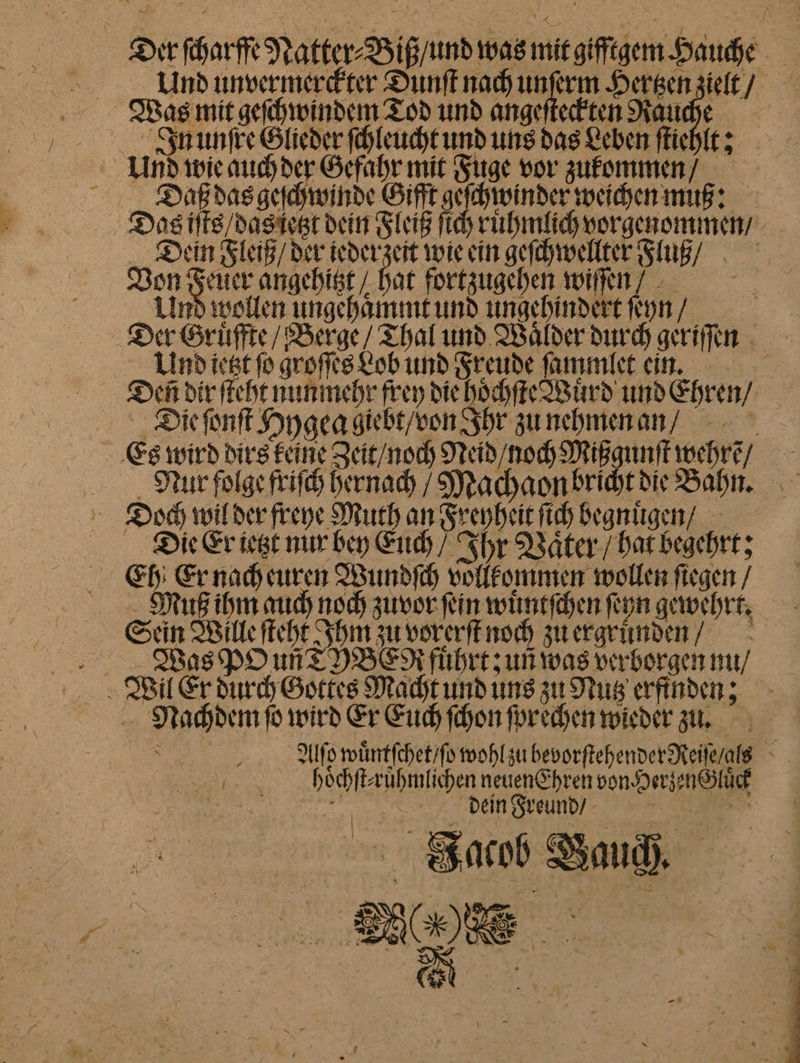 Der ſcharffe Natter⸗Biß/und was mit gifftgem Hauche
Und unvermerckter Dunſt nach unſerm Hertzen zielt /
Was mit geſchwindem Tod und angeſteckten Rauche
In unſre Glieder ſchleucht und uns das Leben ſtiehlt;
Und wie auch der Gefahr mit Fuge vor zukommen /
Daß das geſchwinde Gifft geſchwinder weichen muß:
Das iſts/das ietzt dein Fleiß ſich ruͤhmlich vorgenommen/
Dein Fleiß/ der iederzeit wie ein geſchwellter Fluß/
Von Feuer angehitzt / hat fortzugehen wiſſen /
Und wollen ungehaͤmmt und ungehindert ſeyn /
Der Gruͤffte / Berge / Thal und Waͤlder durch geriſſen
Und ietzt ſo groſſes Lob und Freude ſammlet ein.
Deñ dir ſteht nunmehr frey die hoͤchſte Wuͤrd und Ehren/
Die ſonſt Hygea giebt/von Ihr zu nehmen an /
Es wird dirs keine Zeit/noch Neid/noch Mißgunſt wehrẽ/
Nur folge friſch hernach / Machaon bricht die Bahn.
Doch wil der freye Muth an Freyheit ſich begnuͤgen/
Die Er ietzt nur bey Euch / Ihr Vaͤter / hat begehrt;
Eh Er nach euren Wundſch vollkommen wollen ſiegen /
Muß ihm auch noch zuvor ſein wuͤntſchen ſeyn gewehrt.
Sein Wille ſteht Ihm zu vorerſt noch zu ergruͤnden /
Was PO uñ TYBER fuͤhrt; uñ was verborgen nu/
Wil Er durch Gottes Macht und uns zu Nutz erfinden;
Nachdem ſo wird Er Euch ſchon ſprechen wieder zu.
Alſo wuͤntſchet/ſo wohl zu bevorſtehender Reiſe/als
hoͤchſt⸗ruͤhmlichen neuen Ehren von Herzen Gluͤck
dein Freund/
Jacob Bauch.
(*)